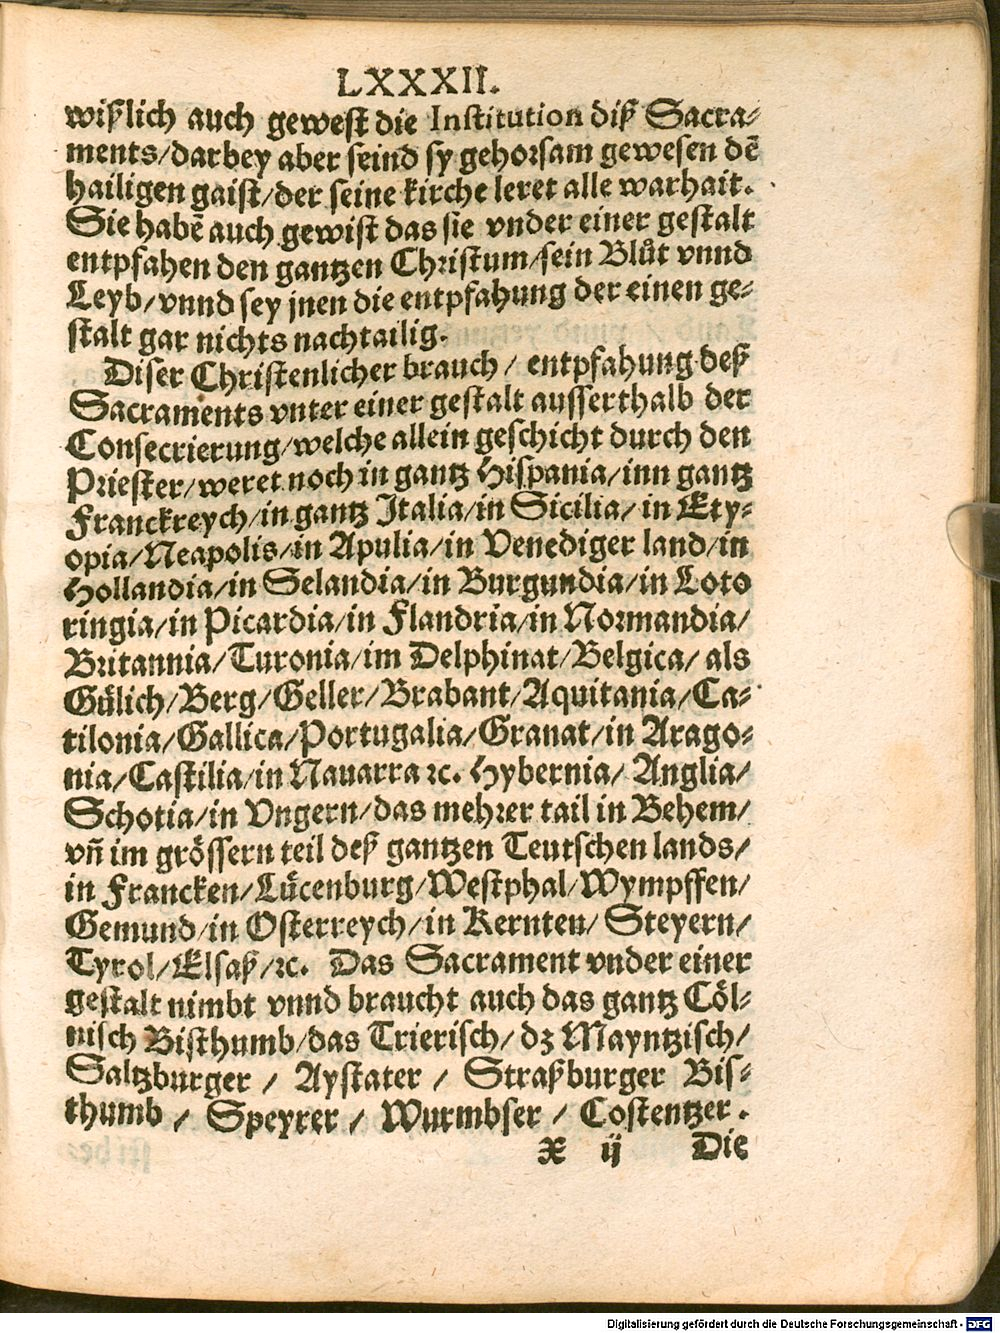 LXXXII.
wißlich auch gewest die Institution diß Sacra-
ments/darbey aber seind sy gehorsam gewesen dē
hailigen gaist/der seine kirche leret alle warhait.
Sie habē auch gewist das sie vnder einer gestalt
entpfahen den gantzen Christum/sein Blůt vnnd
Leyb/vnnd sey jnen die entpfahung der einen ge-
stalt gar nichts nachtailig.
Diser Christenlicher brauch/ entpfahung deß
Sacraments vnter einer gestalt ausserthalb der
Consecrierung/welche allein geschicht durch den
Priester/weret noch in gantz Hispania/inn gantz
Franckreych/in gantz Italia/in Sicilia/ in Ety-
opia/Neapolis/in Apulia/in Venediger land/in
Hollandia/in Selandia/in Burgundia/in Loto
ringia/in Picardia/in Flandria/in Normandia/
Britannia/Turonia/im Delphinat/Belgica/ als
Gülich/Berg/Geller/Brabant/Aquitania/Ca-
tilonia/Gallica/Portugalia/Granat/in Arago-
nia/Castilia/in Nauarra ꝛc. Hybernia/ Anglia/
Schotia/in Vngern/das mehrer tail in Behem/
vñ im grössern teil deß gantzen Teutschen lands/
in Francken/Lücenburg/Westphal/Wympffen/
Gemund/in Osterreych/in Kernten/ Steyern/
Tyrol/Elsaß/ꝛc. Das Sacrament vnder einer
gestalt nimbt vnnd braucht auch das gantz Cöl-
nisch Bisthumb/das Trierisch/ dz Mayntzisch/
Saltzburger / Aystater / Straßburger Bis-
thumb / Speyrer / Wurmbser / Costentzer.
x ij Die
Digitalisierung gefördert durch die Deutsche Forschungsgemeinschaft - DFG